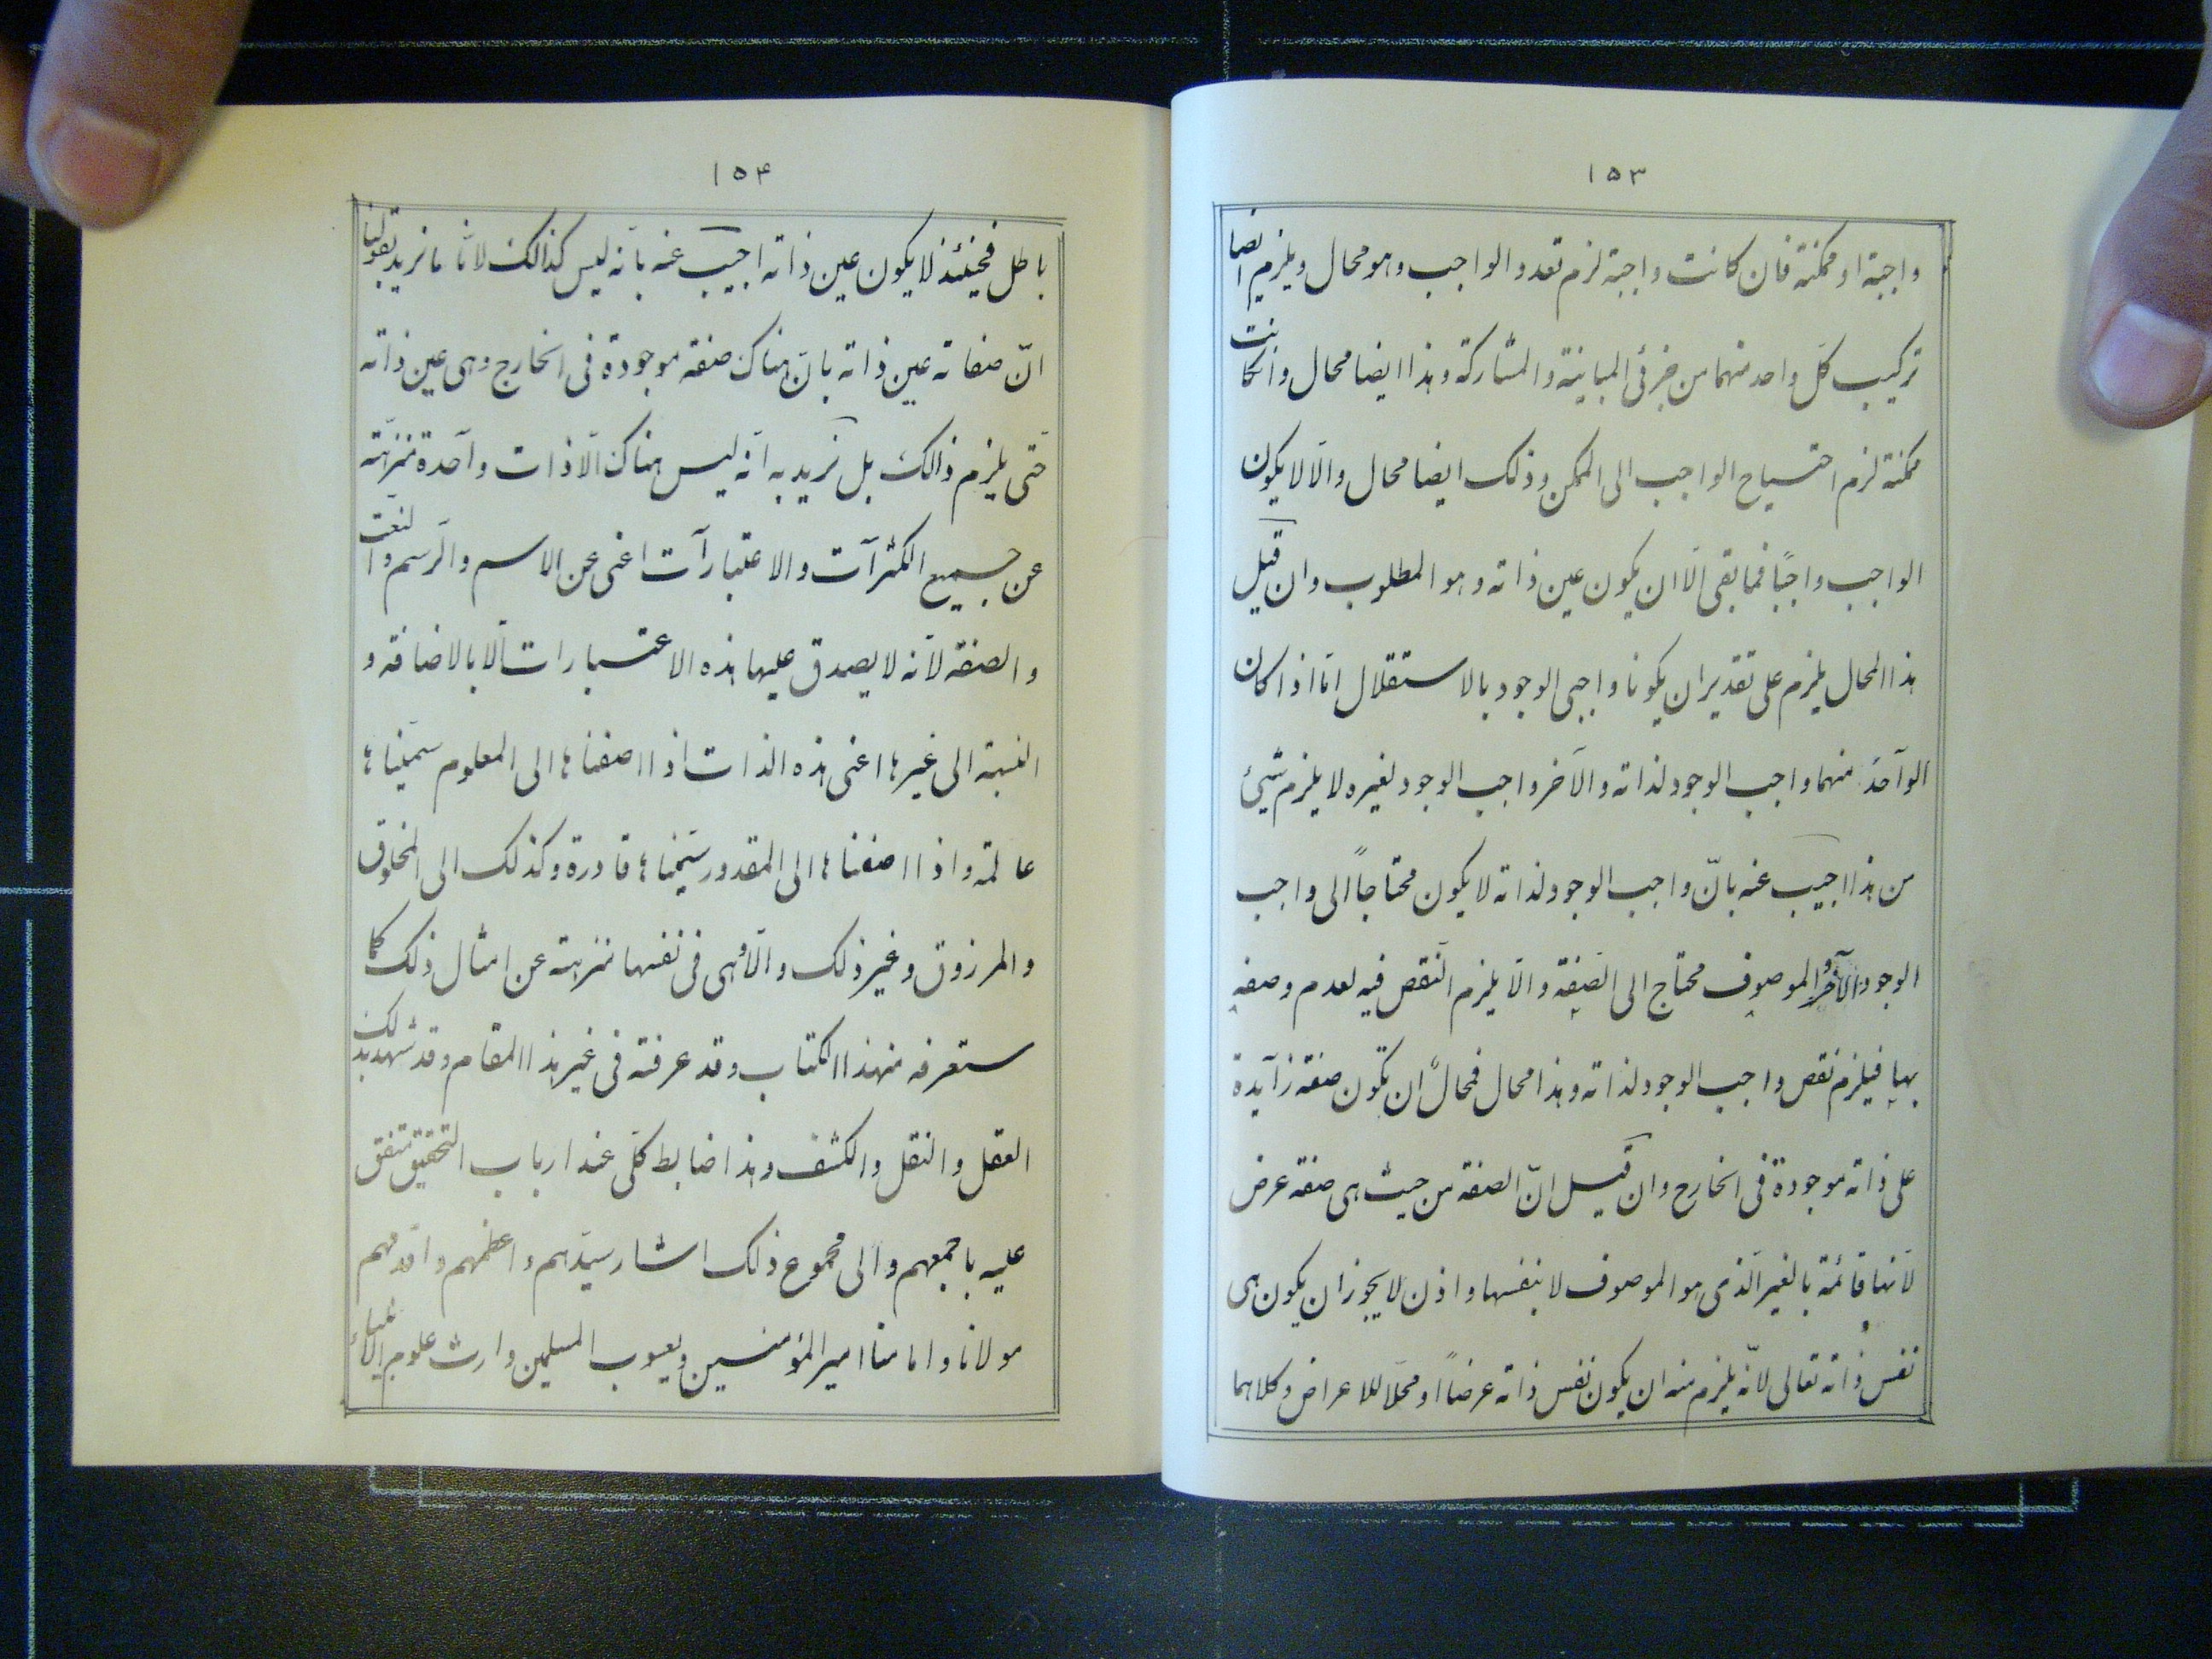 ١٥٣
واجبة او ممكنة فان كانت واجبة لزم تعدد الواجب وهو محال ويلزم ايضا
تركيب كلّ واحد منهما من جزئى المباينة والمشاركة وهذا ايضا محال وانكانت
ممكنة لزم احتسياح الواجب الى الممكن وذلك ايضا محال والّا لا يكون
الواجب واجبًا فما بقى الّا ان يكون عين ذاته وهو المطلوب وان قيل
هذا المحال يلزم على تقدير ان يكونا واجبى الوجود بالاستقلال امّا اذا كان
الواحد منهما واجب الوجود لذاته والآخر واجب الوجود لغيره لا يلزم شيئ
من هذا اجيب عنه بانّ واجب الوجود لذاته لا يكون محتاجاً الى واجب
الوجود الآخر والموصوف محتاج الى الصّفة والّا يلزم النّقص فيه لعدم وصفه
بها فيلزم نقص واجب الوجود لذاته وهذا محال فمحالٌ ان تكون صفة زآيدة
على ذاته موجودة فى الخارج وان قيل انّ الصفة من حيث هى صفة عرض
لانّها قائمة بالغير الّذى هو الموصوف لا بنفسها واذن لا يجوز ان يكون هى
نفس ذاته تعالى لانّه يلزم منه ان يكون نفس ذاته عرضاً او محلّا للاعراض وكلاهما
١٥۴
باطل فحينئذ لا يكون عين ذاته اجيب عنه بانّه ليس كذالك لانّا ما نريد بقولنا
انّ صفاته عين ذاته بانّ هناك صفة موجودة فى الخارج وهى عين ذاته
حتّى يلزم ذالك بل نريد به انّه ليس هناك الّا ذات واحدة منزّهة
عن جميع الكثرآت والاعتبارآت اعنى عن الاسم والرّسم والنّعت
والصفة لانّه لا يصدق عليها هذه الاعتسبارات الّا بالاضافة و
النسبة الى غيرها اعنى هذه الذات اذا اضفناها الى المعلوم سمّيناها
عالمة واذا اضفناها الى المقدور سمّيناها قادرة وكذلك الى المخلوق
والمرزوق وغير ذلك والّا فهى فى نفسها منزهة عن امثال ذلك كما
ستعرفه من هذا الكتاب وقد عرفته فى غير هذا المقام وقد شهد بذلك
العقل والنقل والكشف وهذا ضابط كلّى عند ارباب التحقيق متفق
عليه باجمعهم والى مجموع ذلك اشار سيّدهم واعظمهم واقدمهم
مولانا وامامنا امير المؤمنسين ويعسوب المسلمين وارث علوم الانبياء